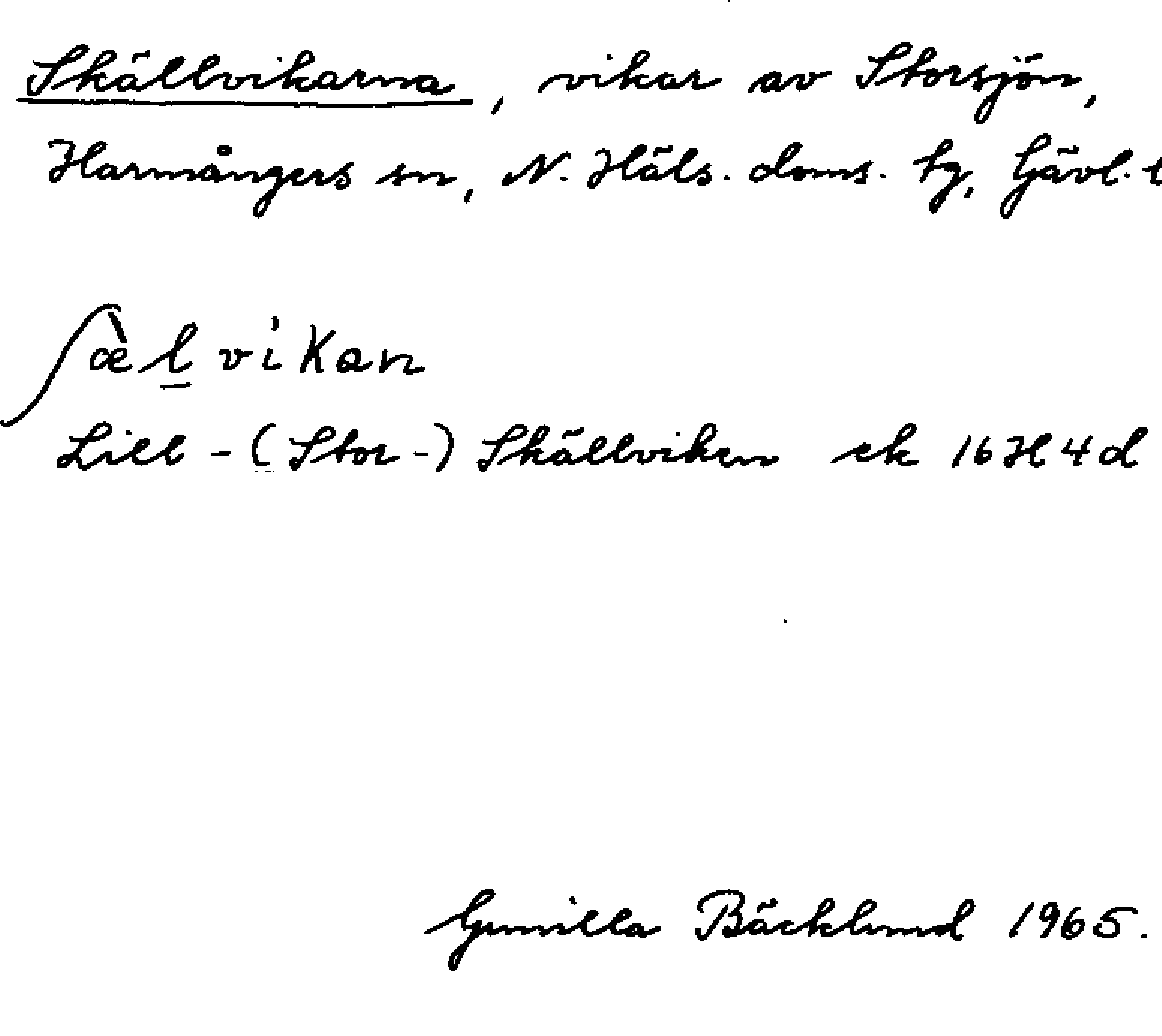 Skällvikarna, vikar av Storsjön,
Harmångers sn, N. Häls. doms. tg, Gävl. l
ʃæ̀l̲vikan
Lill-(Stor-) Skällviken ek 16H4d
Gunilla Bäcklund 1965.